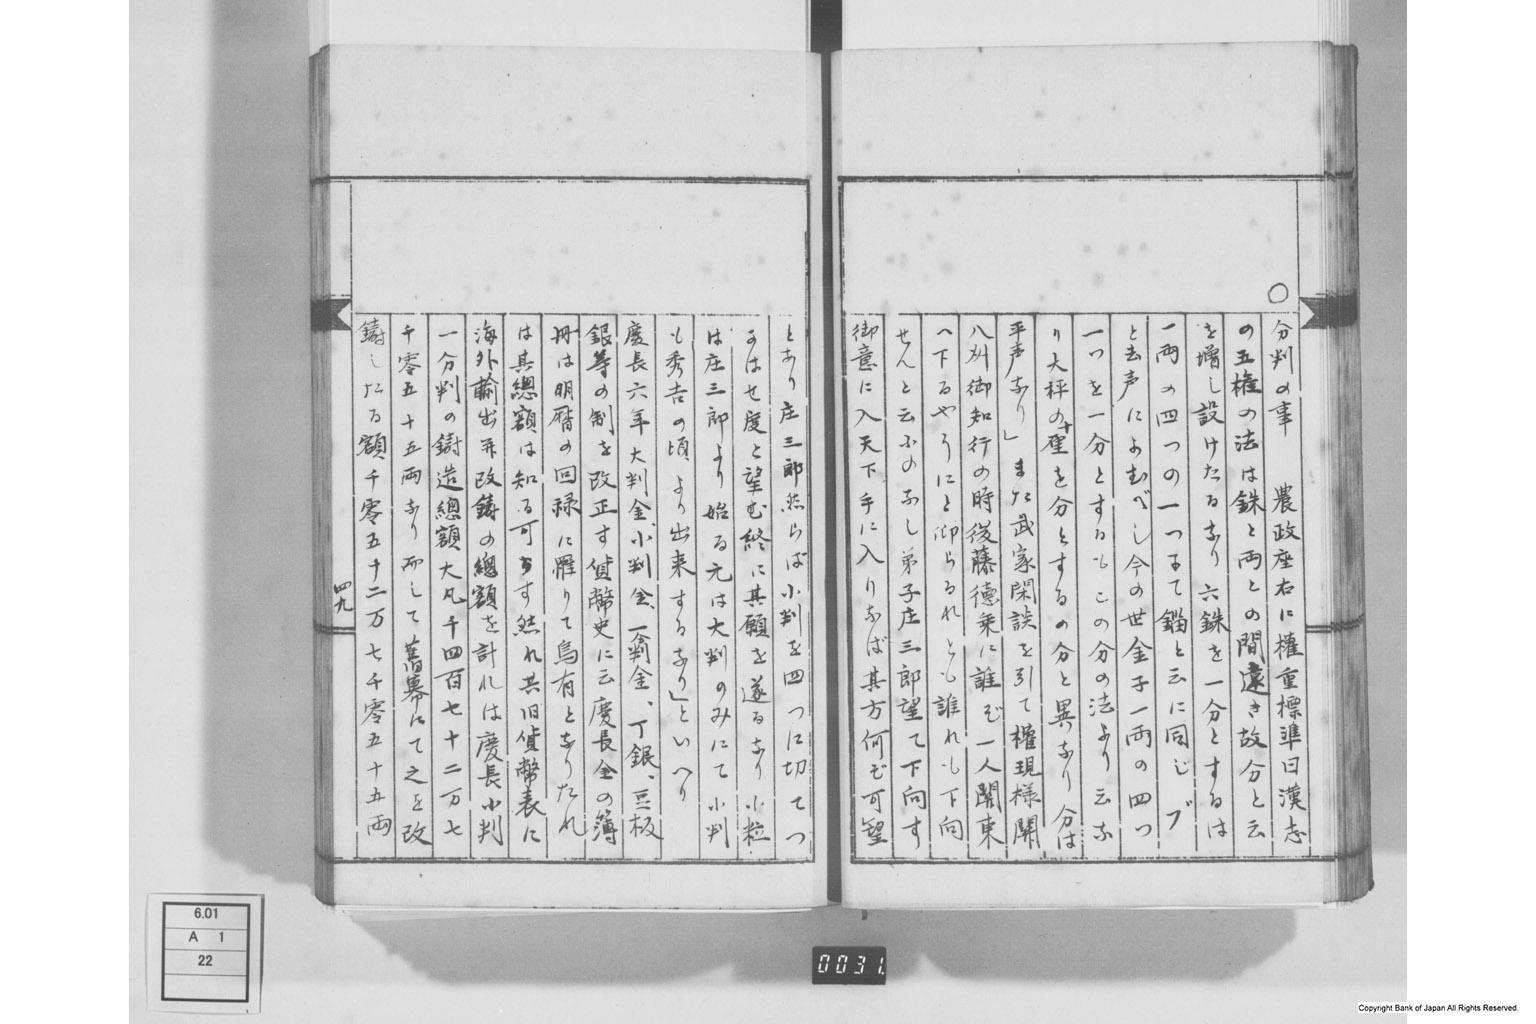 ○
分判の事　農政座右に権重標準曰漢志
の五権の法は銖と両との間遠き故分と云
を増し設けたるなり六銖を一分とするは
一両の四つの一つまて錙と云に同じブ
と去声によむべし今の世金子一両の四つ
一つを一分とするもこの分の法より云な
り大秤の十聖を分とするの分と異なり分は
平声なり」また武家閑談を引て権現様関
八州御知行の時後藤徳乗に誰ぞ一人関東
へ下るやうにと仰らるれとも誰れも下向
せんと云ふのなし弟子庄三郎望て下向す
御意に入天下手に入りなば其方何ぞ可望
とあり庄三郎然らば小判を四つに切てつ
かはせ度と望む終に其願を遂るなり小粒
は庄三郎より始る元は大判のみにて小判
も秀吉の頃より出来するなり」といへり
慶長六年大判金、小判金、一分判金、丁銀、豆板
銀等の制を改正す貨幣史に云慶長金の簿
冊は明暦の回禄に罹りて烏有となりたれ
は其総額は知る可らす然れ共旧貨幣表に
海外輸出并改鋳の総額を計れは慶長小判
一分判の鋳造総額大凡千四百七十二万七
千零五十五両なり而して旧幕にて之を改
鋳したる額千零五十二万七千零五十五両
四九
6.01
A 1
22
0031.
Copyright Bank of Japan All Rights Reserved.